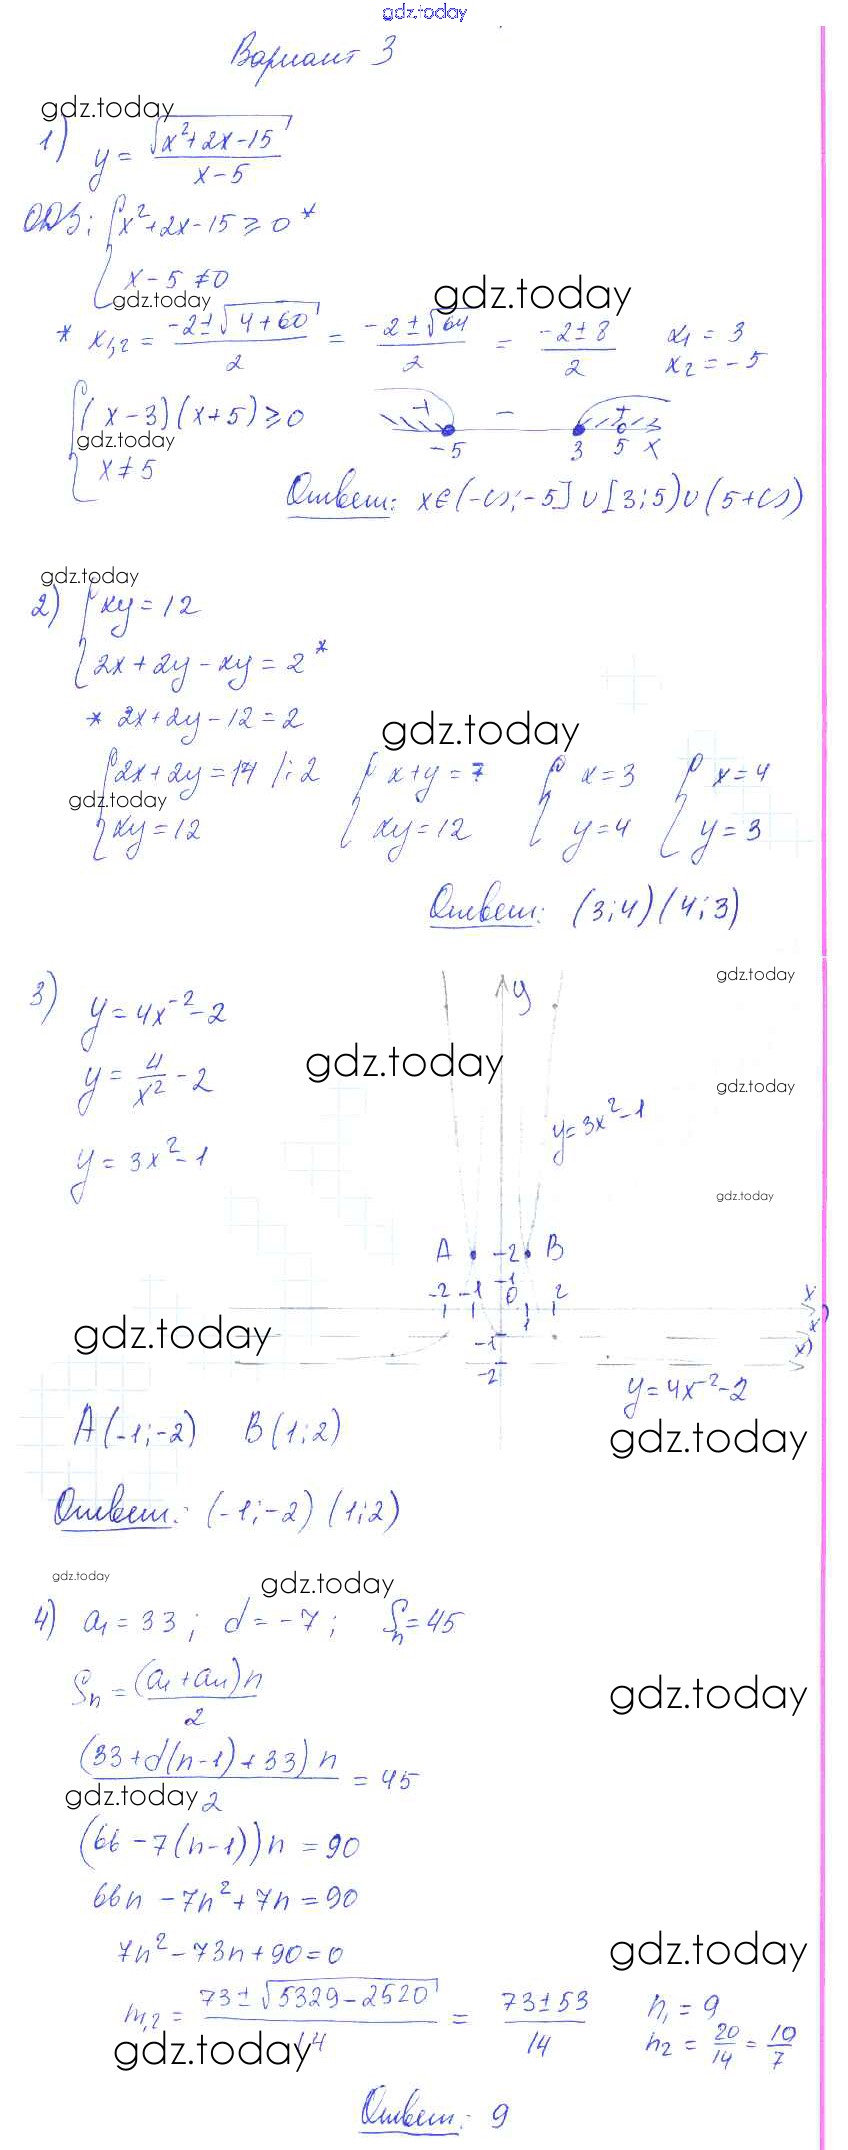 gdz.today
Вариант 3
gdz.today
1) y = √(x²+2x-15) / (x-5)
ОДЗ: { x²+2x-15 ⩾ 0 *
x-5 ≠ 0
gdz.today
gdz.today
* x₁,₂ = (-2±√(4+60)) / 2 = (-2±√64) / 2 = (-2±8) / 2 x₁ = 3
x₂ = -5
{ (x-3)(x+5) ⩾ 0
+ - +
gdz.today
x ≠ 5
-5 3 5 x
Ответ: x∈(-∞;-5]∪[3;5)∪(5+∞)
gdz.today
2) { xy = 12
2x+2y-xy = 2 *
* 2x+2y-12 = 2
gdz.today
{ 2x+2y = 14 /:2 { x+y = 7 { x = 3 { x = 4
gdz.today
xy = 12 xy = 12 y = 4 y = 3
Ответ: (3;4) (4;3)
gdz.today
3) y = 4x⁻²-2
y
gdz.today
y = 4/x² - 2
gdz.today
y = 3x²-1
y = 3x²-1
gdz.today
A -2 B
-1
-2 -1 0 1 2 x
x
gdz.today
-1 x
-2
y = 4x⁻²-2
A(-1;-2) B(1;2)
gdz.today
Ответ: (-1;-2) (1;2)
gdz.today
gdz.today
4) a₁ = 33; d = -7; Sₙ = 45
Sₙ = (a₁+aₙ)n / 2
gdz.today
(33+d(n-1)+33)n / 2 = 45
gdz.today
(66-7(n-1))n = 90
66n-7n²+7n = 90
7n²-73n+90 = 0
gdz.today
n₁,₂ = (73±√(5329-2520)) / 14 = (73±53) / 14 n₁ = 9
n₂ = 20/14 = 10/7
gdz.today
Ответ: 9